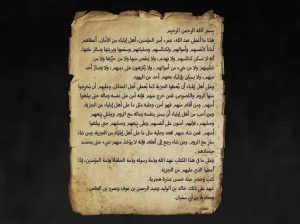 بسم الله الرحمن الرحيم
هذا ما أعطى عبد الله، عمر، أمير المؤمنين، أهل إيلياء من الأمان.. أعطاهم
أماناً لأنفسهم وأموالهم ولكنائسهم وصلبانهم وسقمها وبريئها وسائر ملتها..
أنه لا تسكن كنائسهم ولا تهدم، ولا ينقص منها ولا من حيزها ولا من
صليبهم ولا من شيء من أموالهم، ولا يكرهون على دينهم، ولا يضار أحد
منهم، ولا يسكن بإيلياء معهم أحد من اليهود.
وعلى أهل إيلياء أن يعطوا الجزية كما يعطي أهل المدائن. وعليهم أن يخرجوا
منها الروم واللصوص. فمن خرج منهم فإنه آمن على نفسه وماله حتى يبلغوا
أمنهم. ومن أقام منهم فهو آمن، وعليه مثل ما على أهل إيلياء من الجزية.
ومن أحب من أهل إيلياء أن يسير بنفسه وماله مع الروم ويخلي بيعهم
وصلبهم، فإنهم آمنون على أنفسهم وعلى بيعهم وصلبهم حتى يبلغوا
أمنهم. فمن شاء منهم قعد وعليه مثل ما على أهل إيلياء من الجزية. ومن شاء
سار مع الروم. ومن شاء رجع إلى أهله، فإنه لا يؤخذ منهم شيء حتى يحصد
حصادهم.
وعلى ما في هذا الكتاب عهد الله وذمة رسوله وذمة الخلفاء وذمة المؤمنين، إذا
أعطوا الذي عليهم من الجزية.
كتب وحضر سنة خمس عشرة هجرية.
شهد على ذلك: خالد بن الوليد وعبد الرحمن بن عوف وعمرو بن العاص
ومعاوية بن أبي سفيان.